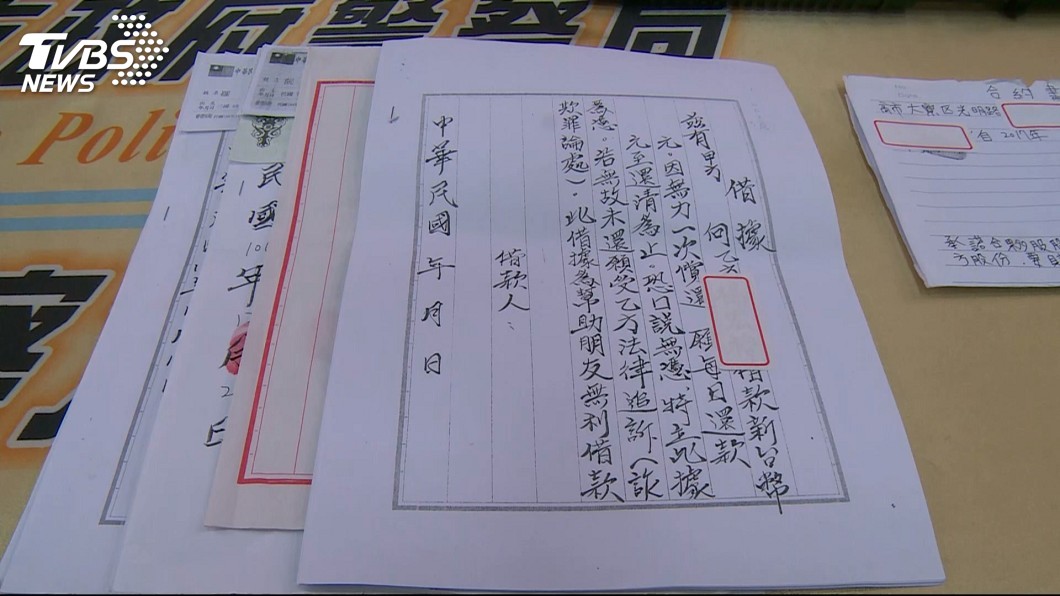 TVBS
NEWS
政府警察局
Poli
借據
茲有甲方 向乙方 借款新台幣
元。因無力一次償還 願每日還款
元至還清為止。恐口說無憑。特立此據
為憑。若無故未還願受乙方法律追訴(詐
欺罪論處)。此借據為幫助朋友無利借款
借款人:
中華民國 年 月 日
民國101年
合約書
市大寮區光明路
自2017年
承諾合夥股
方股份